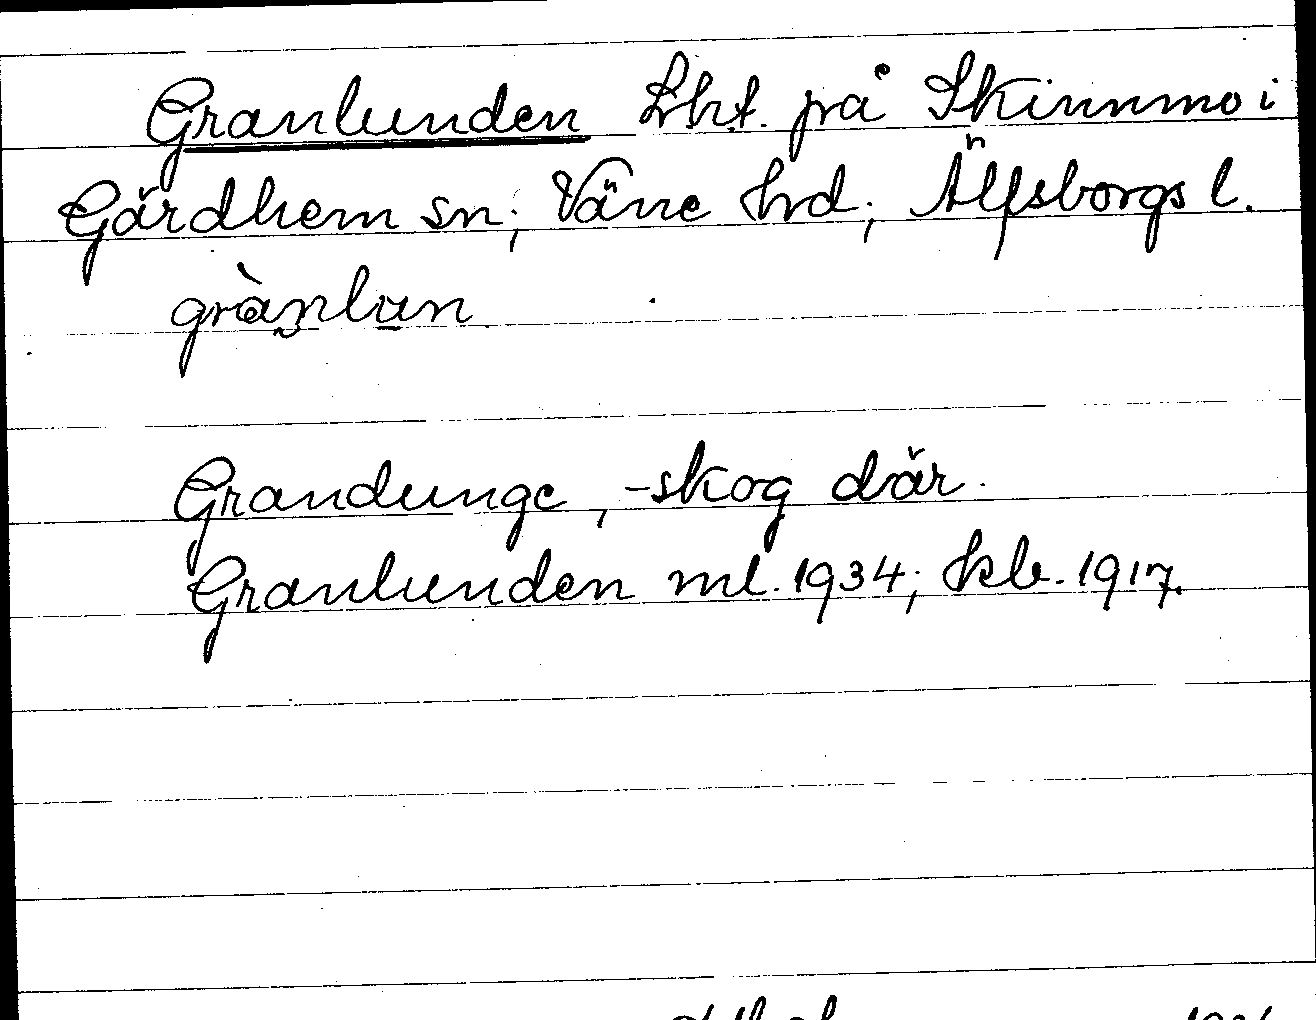 Granlunden Lht. på Skinnmo i
Gärdhem sn; Väne hrd; Älfsborgs l.
grànlun
Grandunge, -skog där.
Granlunden ml. 1934; kb. 1917.